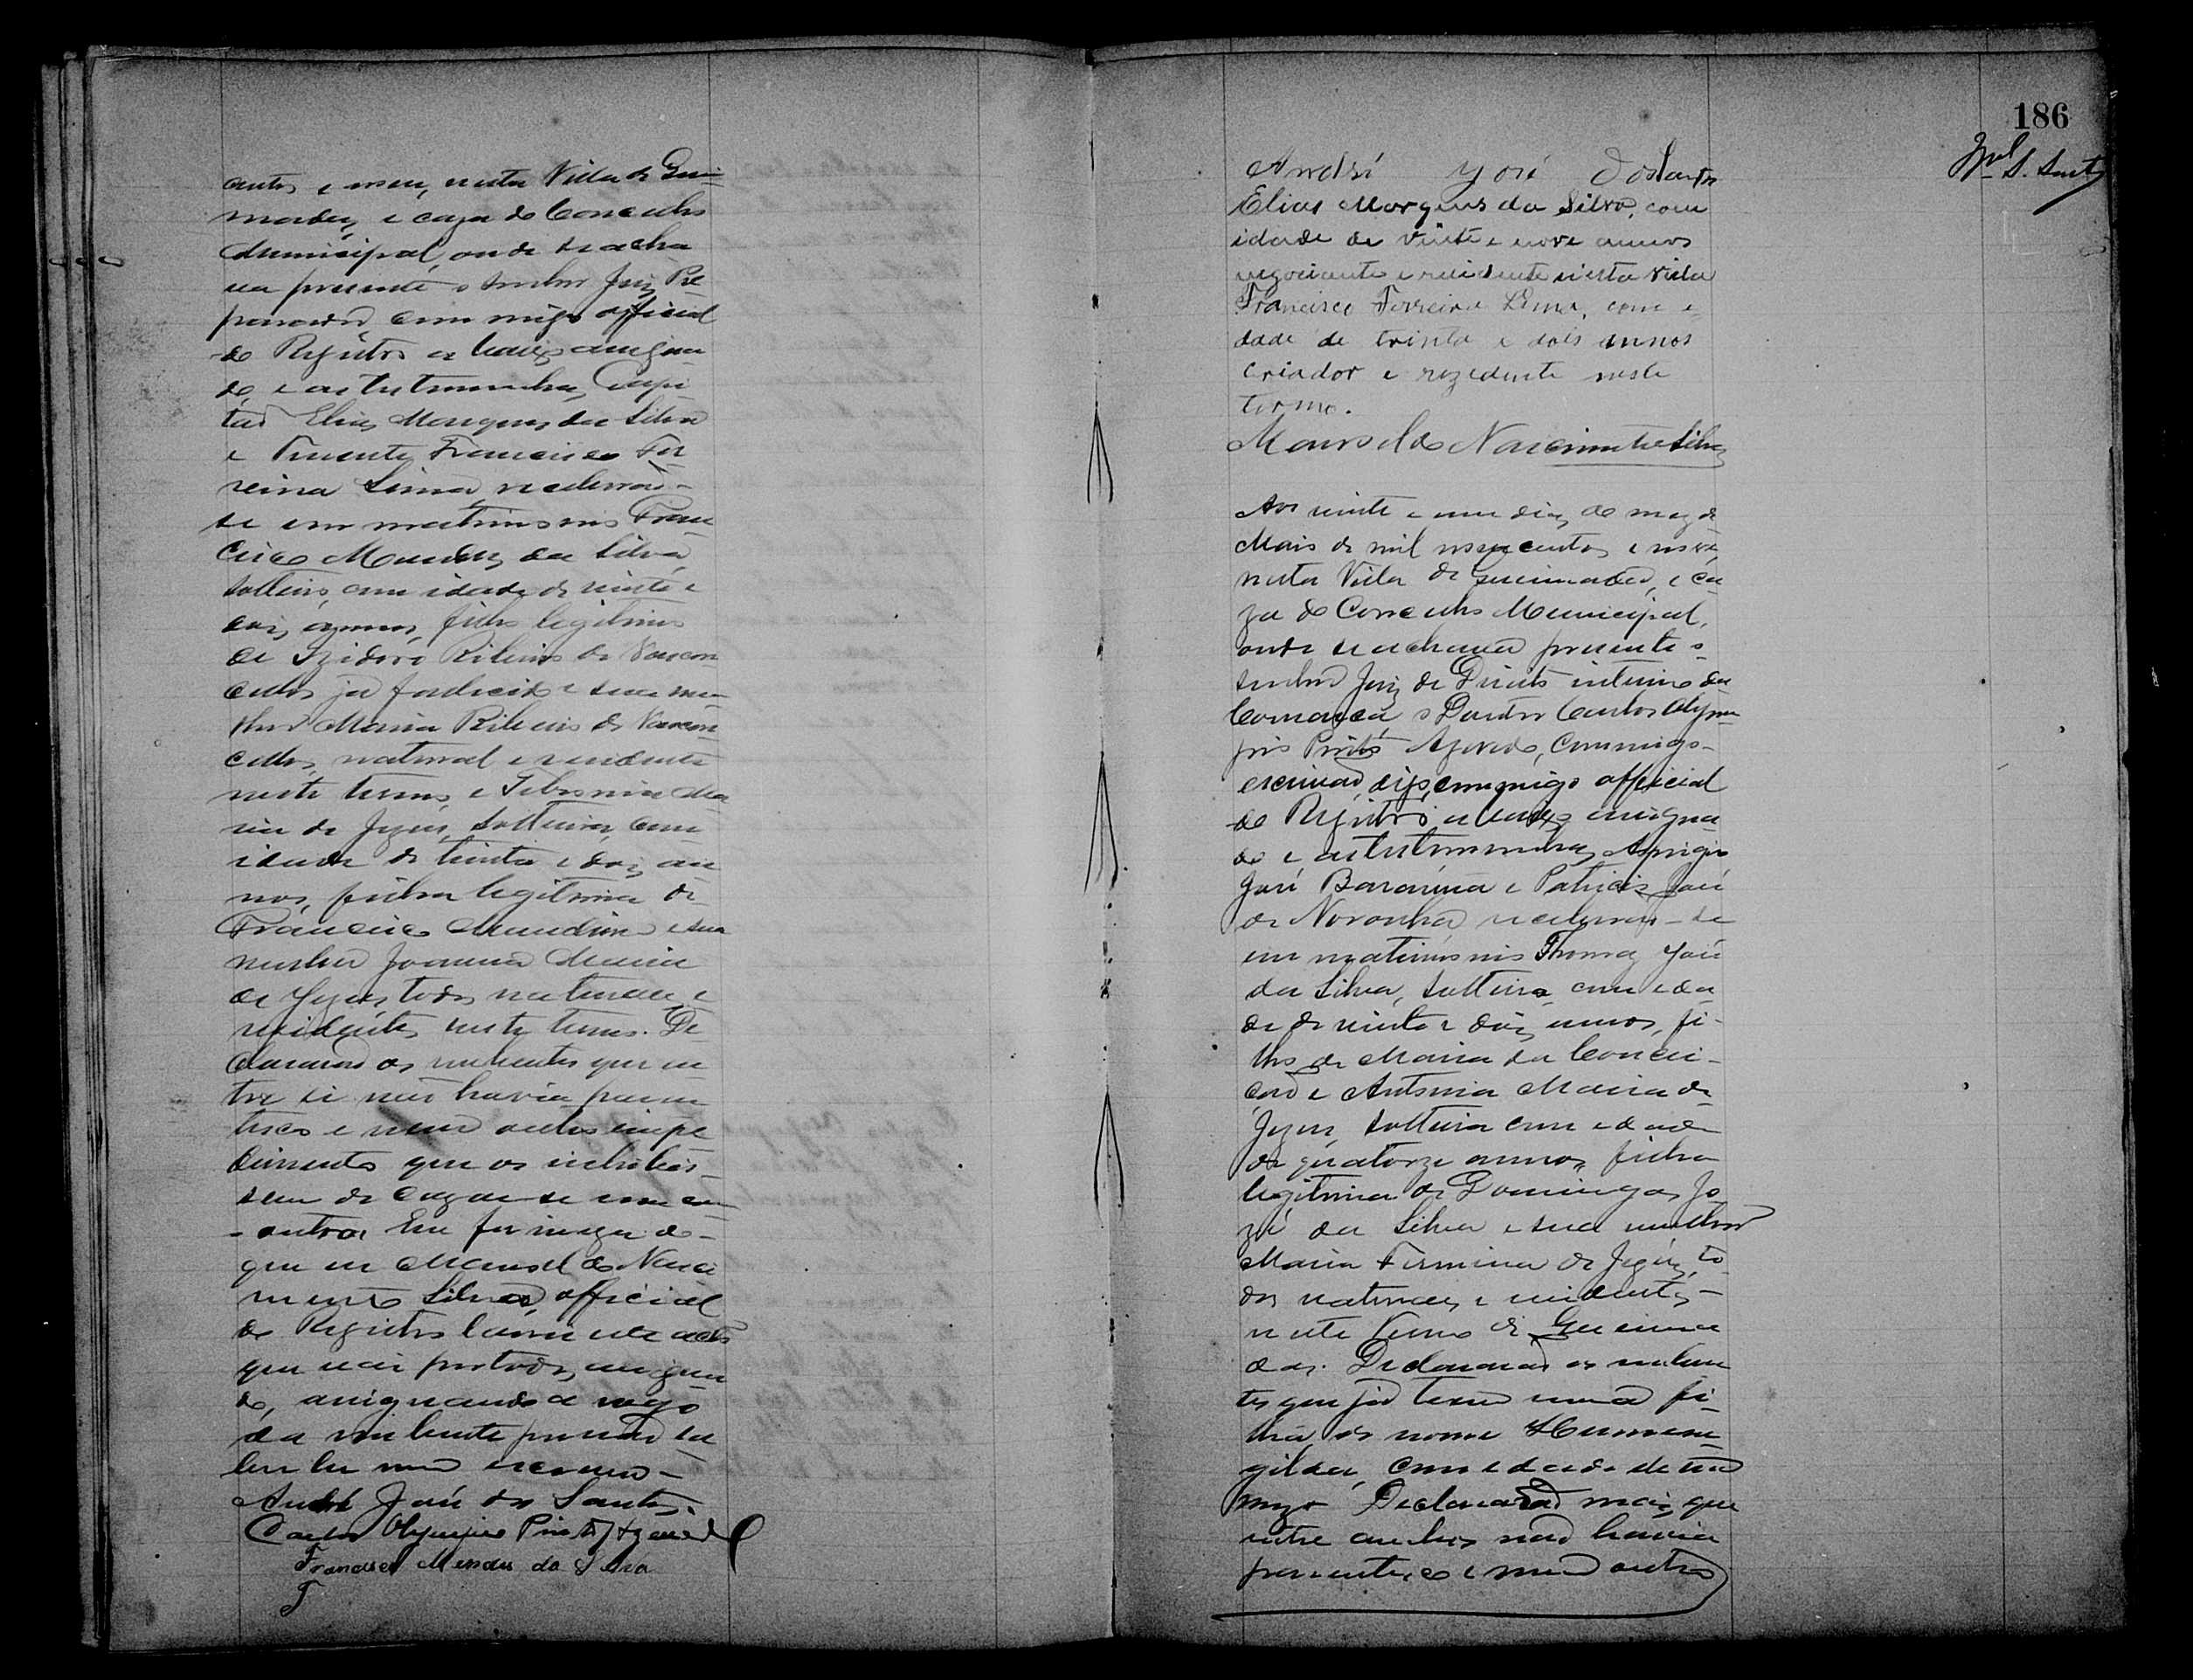 centos e nove, nesta Villa de Quei-
madas, e caza do Concelho
Municipal, onde se acha
va presente o Senhor Juiz Pre
parador, commigo official
do Registro a baixo assigna
do, e as testemunhas, Capi
tão Elias Marques da Silva
e Tenente Francisco Fer
reira Lima, receberão-
se em matrimonio Fran
cisco Mendes da Silva,
solteiro, com idade de vinte e
dois annos, filho legitimo
de Izidoro Ribeiro de Vascon
cellos já fallecido e sua mu
lher Maria Ribeiro de Vascon
cellos, natural e residente
neste termo, e Ma
ria de Jezus, solteira, com
idade de trinta e dois an
nos, filha legitima de
Francisco e sua
mulher Joanna Maria
de Jezus, todos naturaes e
residentes neste termo. De
clararão os nubentes que en
tre si não havia paren
tesco e nem outro impe
dimento que os inhibis-
sem de cazar-se um com
outro. Em firmeza do
que eu Manoel do Nasci
mento Silva, official
do Registro lavrei este acto
que vai por todos assigna
do, assignando a rogo
da nubente por não sa
ber ler nem escrever
André José dos Santos.
Carlos Olympio Pinto Azevedo
Francisco Mendes da Silva
186
S. Santos
André José dos Santos
Elias Marques da Silva, com
idade de vinte e nove annos
negociante e residente n'esta villa
Francisco Ferreira Lima, com e
dade de trinta e dois annos
criador e rezedente neste
termo.
Manoel do Nascimento Silva
Aos vinte e um dias do mez de
Maio de mil novecentos e nove,
nesta Villa de Queimadas, e ca
za do Concelho Municipal,
onde se achava presente o
senhor Juiz de Direito interino da
Comarca, o Doutor Carlos Olym
pio Pinto Azevedo, commigo
escrivão, digo, commigo official
do Registro a baixo assigna
do e as testemunhas Aprigio
José Barauna e Patricio José
de Noronha, receberão-se
em matrimonio Thomaz José
da Silva, solteiro, com eda
de de vinte e dois annos, fi-
lho de Maria da Concei-
ção e Antonia Maria de
Jezus, solteira com edade
de quatorze annos, filha
legitima de Domingos Jo
zé da Silva e sua mulher
Maria Firmina de Jezus, to
dos naturaes e residentes
neste Termo de Queima
das. Declararão os nuben
tes que já tem uma fi-
lha de nome Hermene
gilda, com edade de um
mez. Declararão mais que
entre ambos não havia
parentesco e nem outro